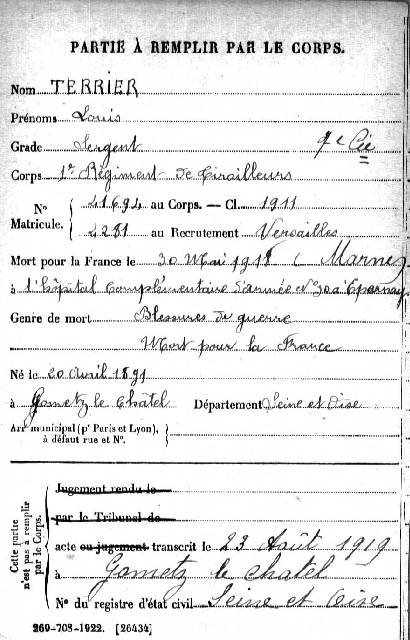 PARTIE À REMPLIR PAR LE CORPS.
Nom TERRIER
Prénoms Louis
Grade Sergent 9e Cie
Corps 1er Régiment de Tirailleurs
N° Matricule. { 41694 au Corps. — Cl. 1911
4281 au Recrutement Versailles
Mort pour la France le 30 Mai 1918 (Marne)
à l'hôpital Complémentaire d'armée N° 30 à Epernay
Genre de mort Blessures de guerre
Mort pour la France
Né le 20 Avril 1891
à Gometz le Chatel Département Seine et Oise
Arrt municipal (pr Paris et Lyon), à défaut rue et N°. {
Cette partie n'est pas à remplir par le Corps.
Jugement rendu le
par le Tribunal de
acte ou jugement transcrit le 23 Août 1919
à Gometz le chatel
N° du registre d'état civil Seine et Oise
269-708-1922. [26434]